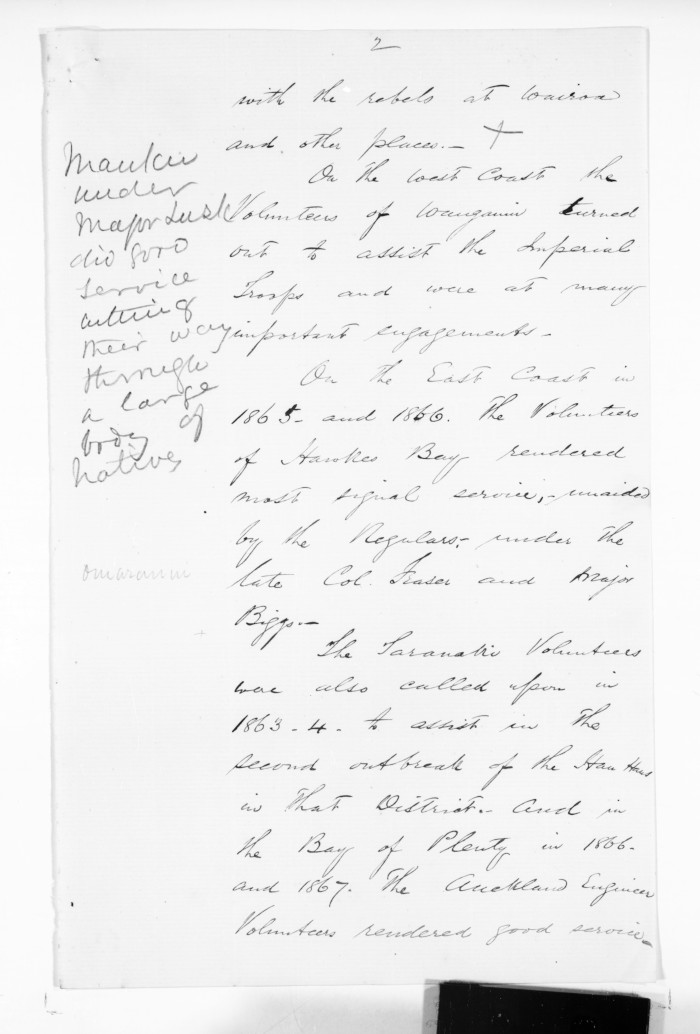 2
with the rebels at Wairoa
and other places. - +
On the West Coast the
Volunteers of Wanganui turned
out to assist the Imperial
Troops and were at many
important engagements -
On the East Coast in
1865 - and 1866. The Volunteers
of Hawkes Bay rendered
most signal service, - unaided
by the Regulars; under the
late Col. Fraser and Major
Biggs. -
The Taranaki Volunteers
were also called upon in
1863 - 4 - to assist in the
second outbreak of the Hau Haus
in that District. - And in
the Bay of Plenty in 1866 -
and 1867. The Auckland Engineer
Volunteers rendered good service -
Mauku
under
Major Lusk
did good
service
cutting
their way
through
a large
body of
natives
Omaranui
+